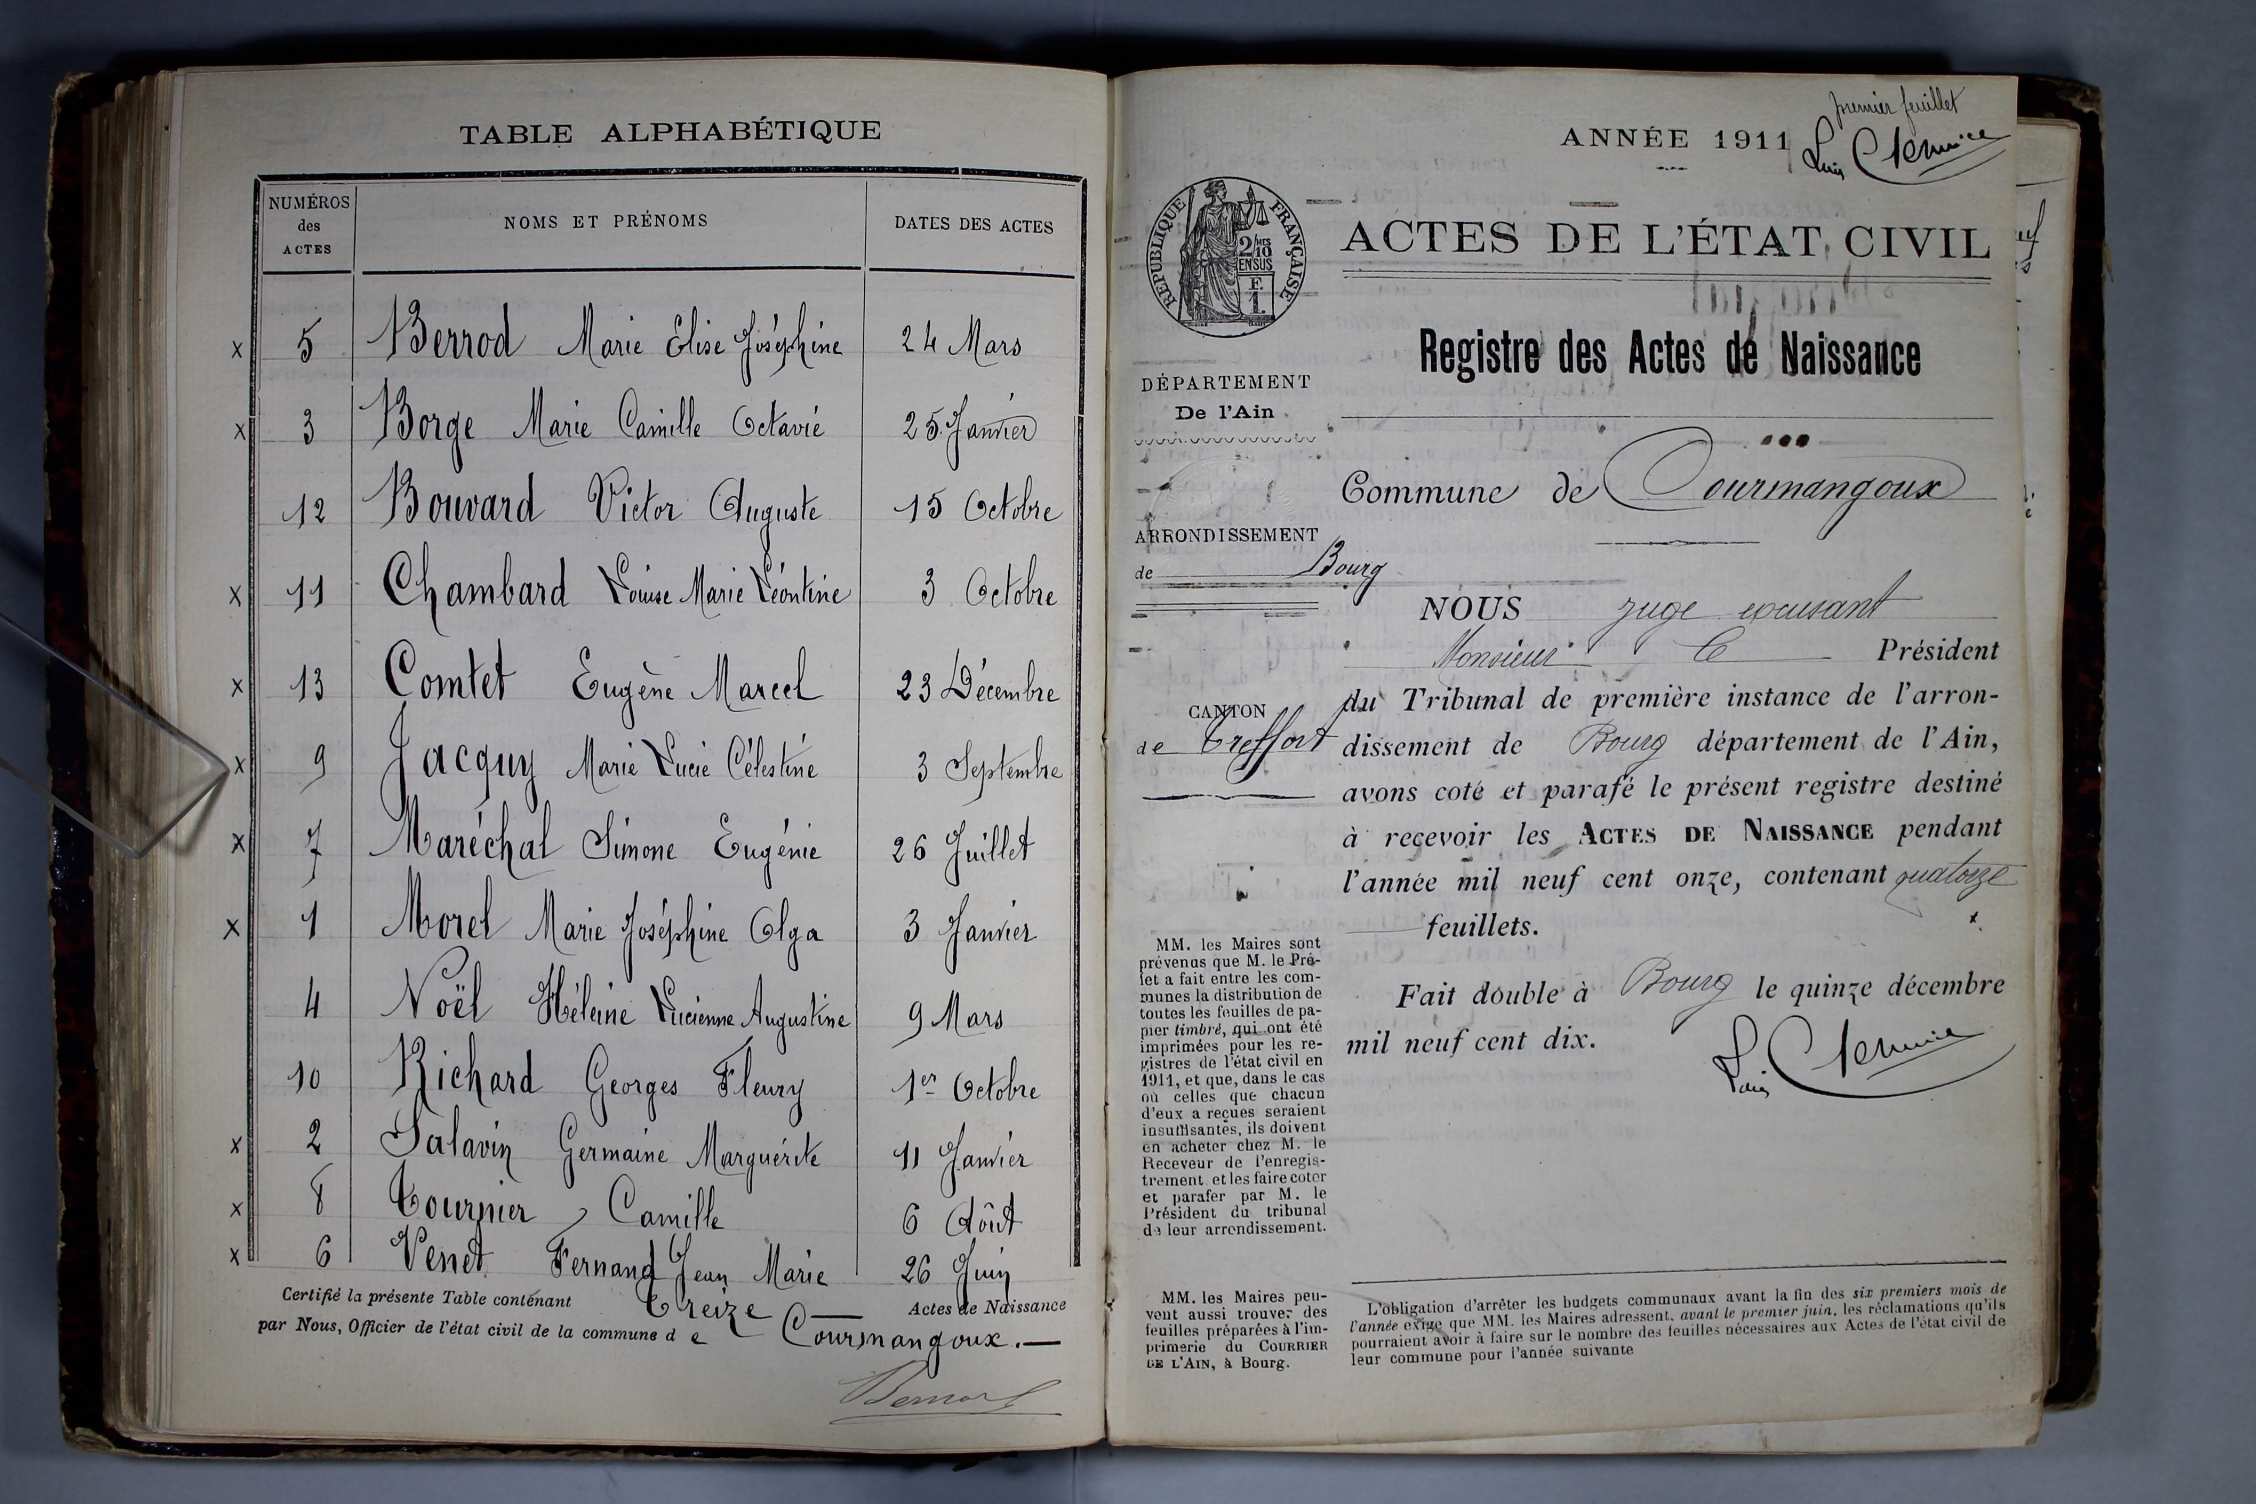 TABLE ALPHABÉTIQUE
NUMÉROS des ACTES
NOMS ET PRÉNOMS
DATES DES ACTES
x 5 Berrod Marie Elise Joséphine 24 Mars
x 3 Borge Marie Camille Octavie 25 Janvier
12 Bouvard Victor Auguste 15 Octobre
x 11 Chambard Louise Marie Léontine 3 Octobre
x 13 Comtet Eugène Marcel 23 Décembre
x 9 Jacquy Marie Lucie Célestine 3 Septembre
x 7 Maréchal Simone Eugénie 26 Juillet
x 1 Morel Marie Joséphine Olga 3 Janvier
4 Noël Héleine Lucienne Augustine 9 Mars
10 Richard Georges Fleury 1er Octobre
x 2 Salavin Germaine Marguérite 11 Janvier
x 8 Tournier, Camille 6 Août
x 6 Venet Fernand Jean Marie 26 Juin
Certifié la présente Table contenant Treize — Actes de Naissance
par Nous, Officier de l'état civil de la commune de Courmangoux. —
premier feuillet
ANNÉE 1911
RÉPUBLIQUE FRANÇAISE
2/10MES
EN SUS
F.
1.
ACTES DE L'ÉTAT CIVIL
Registre des Actes de Naissance
DÉPARTEMENT
De l'Ain
Commune de Courmangoux
ARRONDISSEMENT
de Bourg
NOUS juge excusant
Monsieur le Président
du Tribunal de première instance de l'arron-
CANTON
de Treffort
dissement de Bourg département de l'Ain,
avons coté et parafé le présent registre destiné
à recevoir les ACTES DE NAISSANCE pendant
l'année mil neuf cent onze, contenant quatorze
feuillets.
Fait double à Bourg le quinze décembre
mil neuf cent dix.
MM. les Maires sont
prévenus que M. le Pré-
fet a fait entre les com-
munes la distribution de
toutes les feuilles de pa-
pier timbré, qui ont été
imprimées pour les re-
gistres de l'état civil en
1911, et que, dans le cas
où celles que chacun
d'eux a reçues seraient
insuffisantes, ils doivent
en acheter chez M. le
Receveur de l'enregis-
trement et les faire coter
et parafer par M. le
Président du tribunal
de leur arrondissement.
MM. les Maires peu-
vent aussi trouver des
feuilles préparées à l'im-
primerie du COURRIER
DE L'AIN, à Bourg.
L'obligation d'arrêter les budgets communaux avant la fin des six premiers mois de
l'année exige que MM. les Maires adressent, avant le premier juin, les réclamations qu'ils
pourraient avoir à faire sur le nombre des feuilles nécessaires aux Actes de l'état civil de
leur commune pour l'année suivante